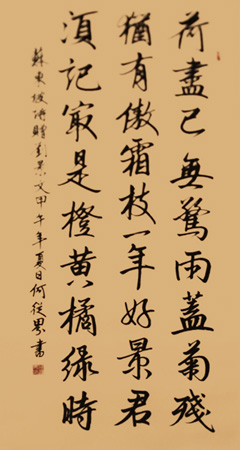 荷盡已無驚雨蓋菊殘
猶有傲霜枝一年好景君
湏記最是橙黃橘綠時
蘇東坡詩贈劉景文甲午年夏日何從書